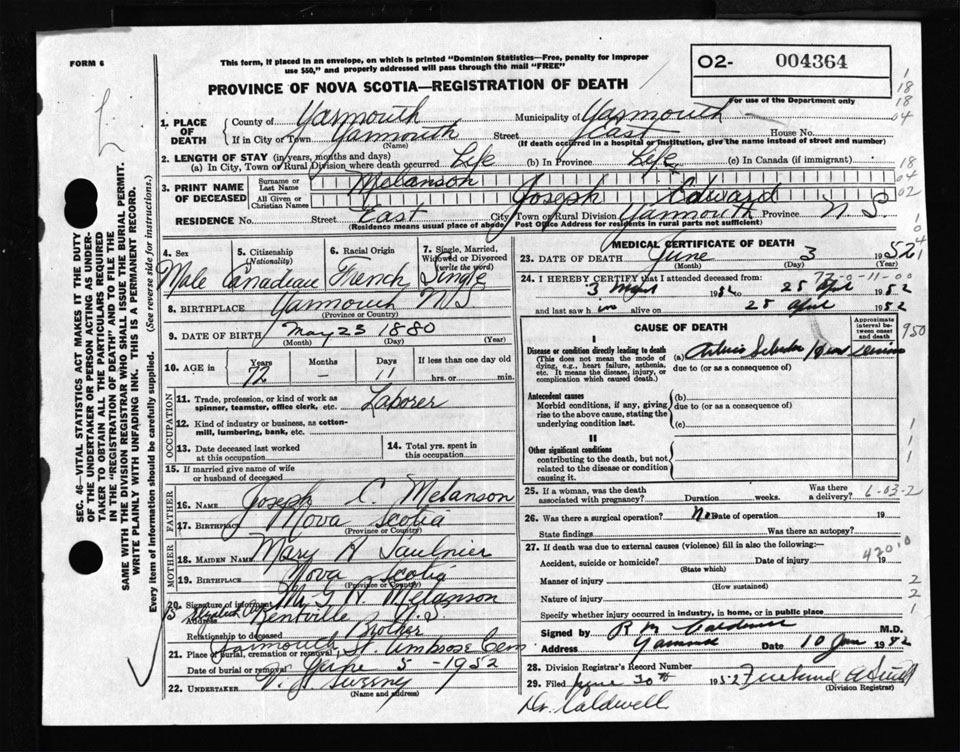 FORM 6
This form, if placed in an envelope, on which is printed "Dominion Statistics—Free, penalty for improper
use $50," and properly addressed will pass through the mail "FREE"
02- 004364
For use of the Department only
PROVINCE OF NOVA SCOTIA—REGISTRATION OF DEATH
1. PLACE OF DEATH
County of Yarmouth Municipality of Yarmouth
If in City or Town Yarmouth Street East House No.
(Name) (If death occurred in a hospital or institution, give the name instead of street and number)
2. LENGTH OF STAY (in years, months and days)
(a) In City, Town or Rural Division where death occurred Life (b) In Province Life (c) In Canada (if immigrant)
3. PRINT NAME OF DECEASED
Surname or Last Name Melanson
All Given or Christian Names Joseph Edward
RESIDENCE No. Street East City, Town or Rural Division Yarmouth Province N S
(Residence means usual place of abode. Post Office Address for residents in rural parts not sufficient)
4. Sex Male
5. Citizenship (Nationality) Canadian
6. Racial Origin French
7. Single, Married, Widowed or Divorced (write the word) Single
8. BIRTHPLACE Yarmouth NS
(Province or Country)
9. DATE OF BIRTH May 23 1880
(Month) (Day) (Year)
10. AGE in Years 72 Months — Days 11 If less than one day old
hrs. or min.
OCCUPATION
11. Trade, profession, or kind of work as spinner, teamster, office clerk, etc. Laporer
12. Kind of industry or business, as cotton-mill, lumbering, bank, etc.
13. Date deceased last worked at this occupation
14. Total yrs. spent in this occupation
15. If married give name of wife or husband of deceased
FATHER
16. Name Joseph C. Melanson
17. Birthplace Nova Scotia
(Province or Country)
MOTHER
18. MAIDEN NAME Mary H Saulnier
19. BIRTHPLACE Nova Scotia
(Province or Country)
20. Signature of informant H Melanson
Address Kentville N.S.
Relationship to deceased Brother
21. Place of burial, cremation or removal Yarmouth, St. Ambrose Cem
Date of burial or removal June 5 - 1952
22. UNDERTAKER V. J. Sweeny
(Name and address)
MEDICAL CERTIFICATE OF DEATH
23. DATE OF DEATH June 3 1952
(Month) (Day) (Year)
72-0-11-00
24. I HEREBY CERTIFY that I attended deceased from
3 1952 to 25 April 1952
and last saw h im alive on 25 April 1952
CAUSE OF DEATH
Approximate interval between onset and death
I
Disease or condition directly leading to death (a)
(This does not mean the mode of dying, e.g., heart failure, asthenia, etc. It means the disease, injury, or complication which caused death.)
due to (or as a consequence of)
Antecedent causes (b)
Morbid conditions, if any, giving rise to the above cause, stating the underlying condition last.
due to (or as a consequence of)
(c)
II
Other significant conditions
contributing to the death, but not related to the disease or condition causing it.
25. If a woman, was the death associated with pregnancy? Duration weeks. Was there a delivery? 6-03-2
26. Was there a surgical operation? No Date of operation 19
State findings Was there an autopsy?
27. If death was due to external causes (violence) fill in also the following:—
Accident, suicide or homicide? Date of injury 19
(State which)
Manner of injury
(How sustained)
Nature of injury
Specify whether injury occurred in industry, in home, or in public place
Signed by R M Caldwell M.D.
Address Yarmouth Date 10 June 1952
28. Division Registrar's Record Number
29. Filed June 30th 1952
(Division Registrar)
Dr. Caldwell
SEC. 46—VITAL STATISTICS ACT MAKES IT THE DUTY
OF THE UNDERTAKER OR PERSON ACTING AS UNDER-
TAKER TO OBTAIN ALL THE PARTICULARS REQUIRED
IN THE "REGISTRATION OF DEATH" AND TO FILE THE
SAME WITH THE DIVISION REGISTRAR WHO SHALL ISSUE THE BURIAL PERMIT.
WRITE PLAINLY WITH UNFADING INK. THIS IS A PERMANENT RECORD.
Every item of information should be carefully supplied. (See reverse side for instructions.)